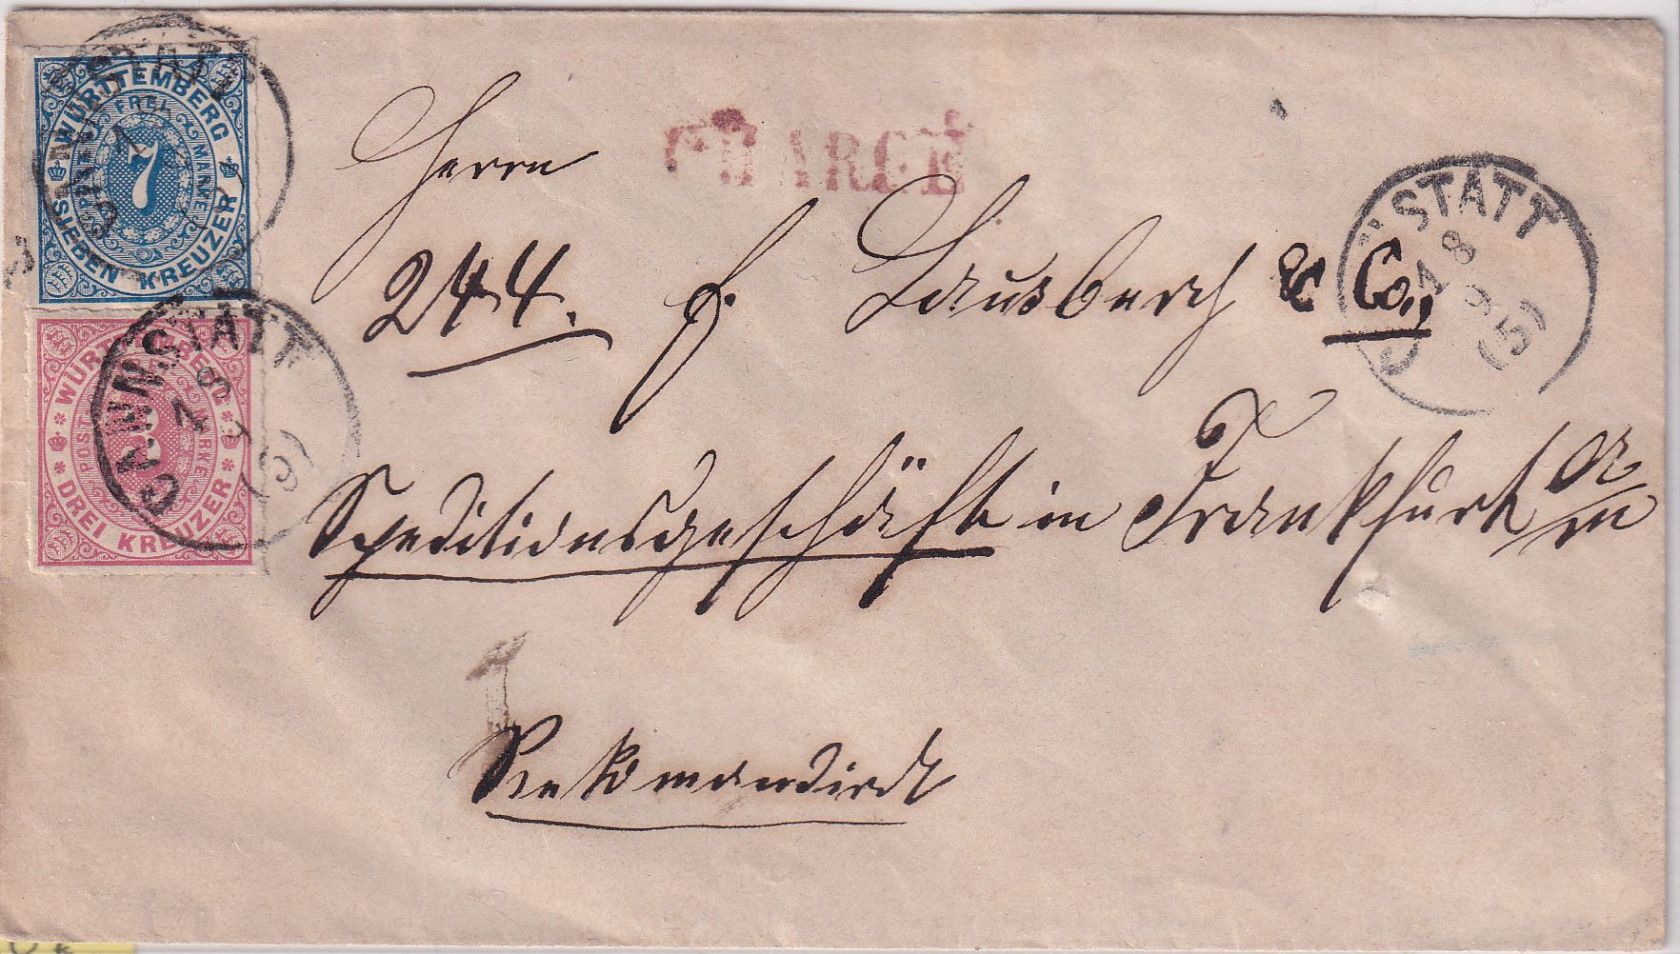 WÜRTTEMBERG
FREI
POST MARKE
7
SIEBEN KREUZER
WÜRTTEMBERG
POST MARKE
3
DREI KREUZER
CANNSTATT
7 8
CHARGÉ
CANNSTATT
18
(5)
Herrn
244.
& Co.,
Speditionsgeschäft in Frankfurt a/m
Rekomandirt